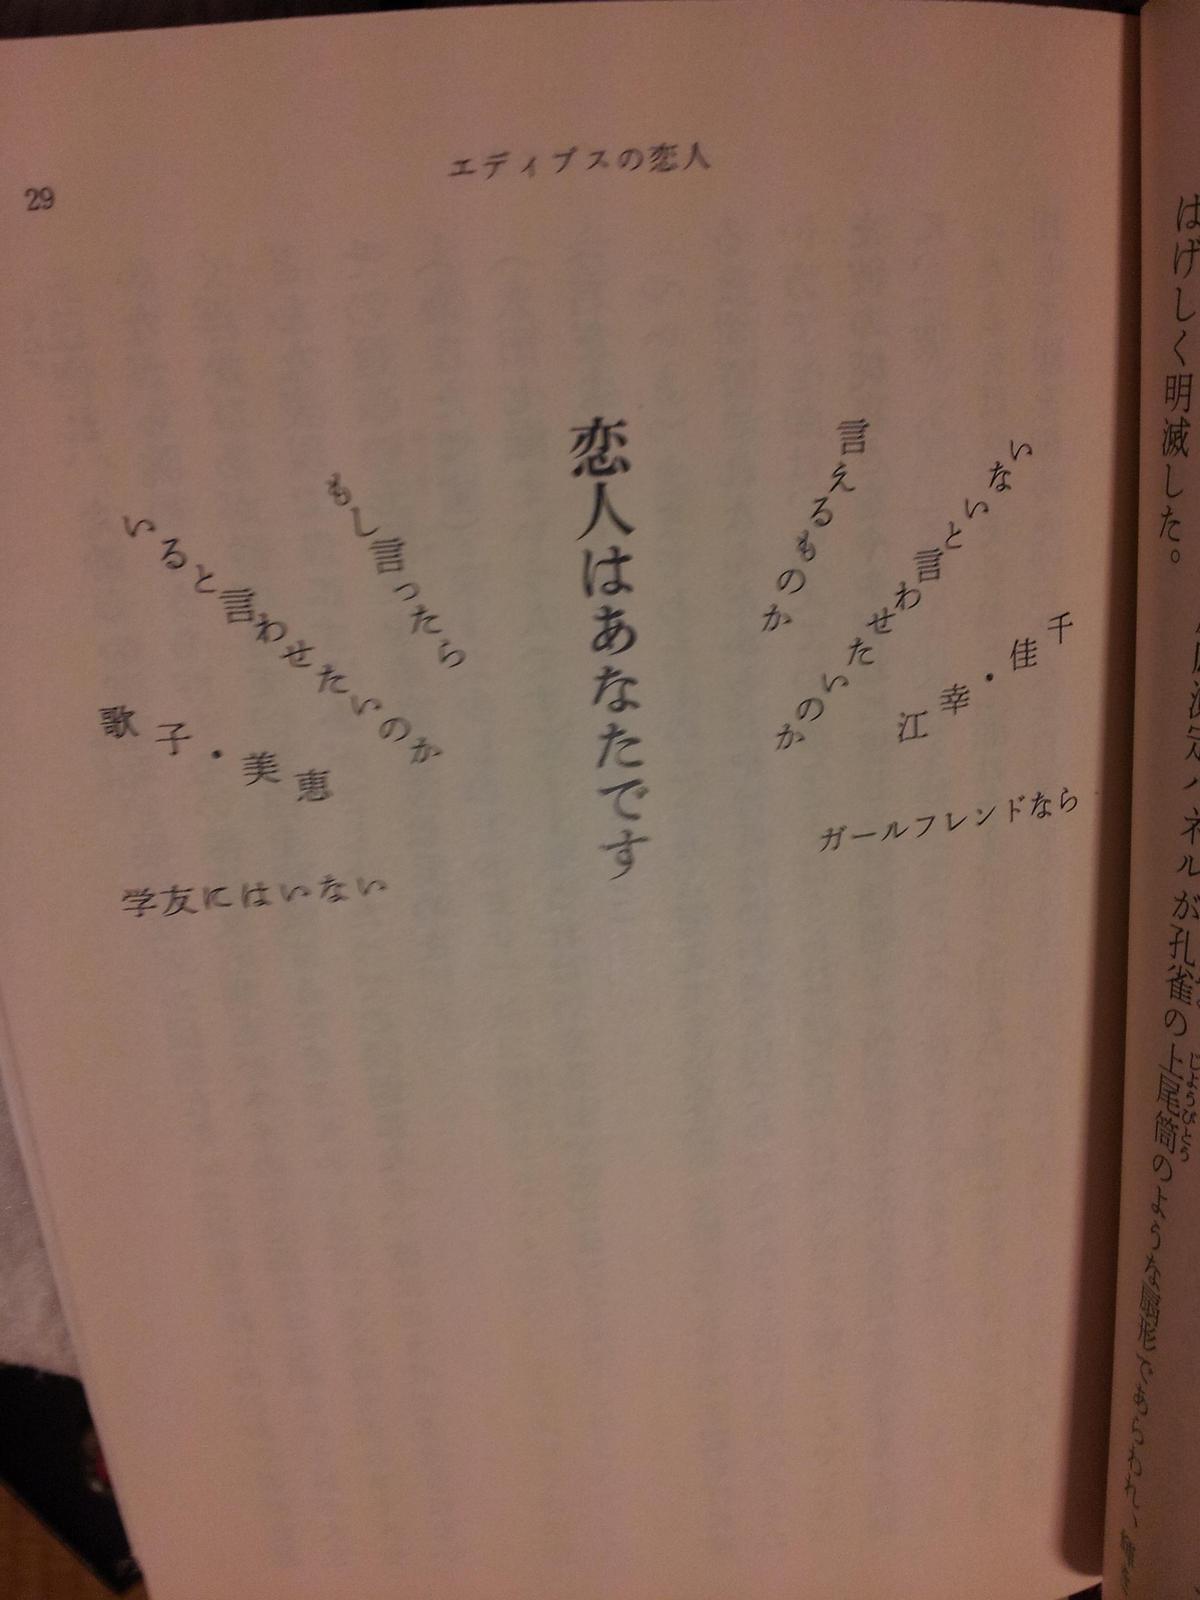 はげしく明滅した。
孔雀の上尾筒のような扇形であらわれ、
じょうびとう
エディプスの恋人
29
ガールフレンドなら
千佳・幸江
いないと言わせたいのか
言えるものか
恋人はあなたです
もし言ったら
いると言わせたいのか
歌子・美恵
学友にはいない